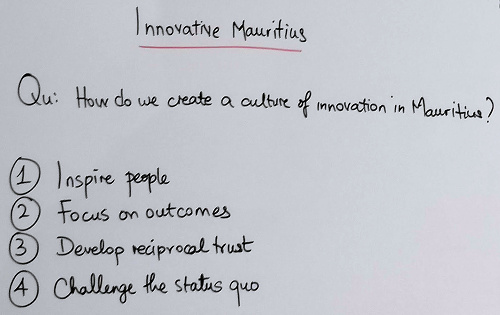 Innovative Mauritius
Qu: How do we create a culture of innovation in Mauritius?
1 Inspire people
2 Focus on outcomes
3 Develop reciprocal trust
4 Challenge the status quo